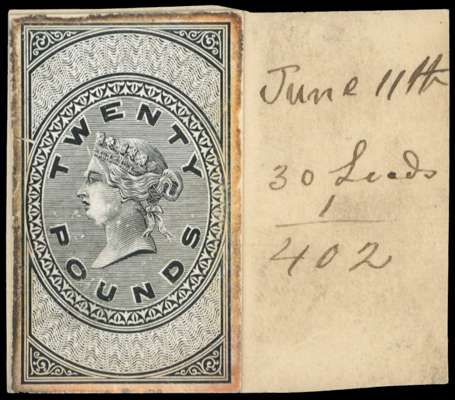 TWENTY
POUNDS
June 11th
30 Leeds
1
402